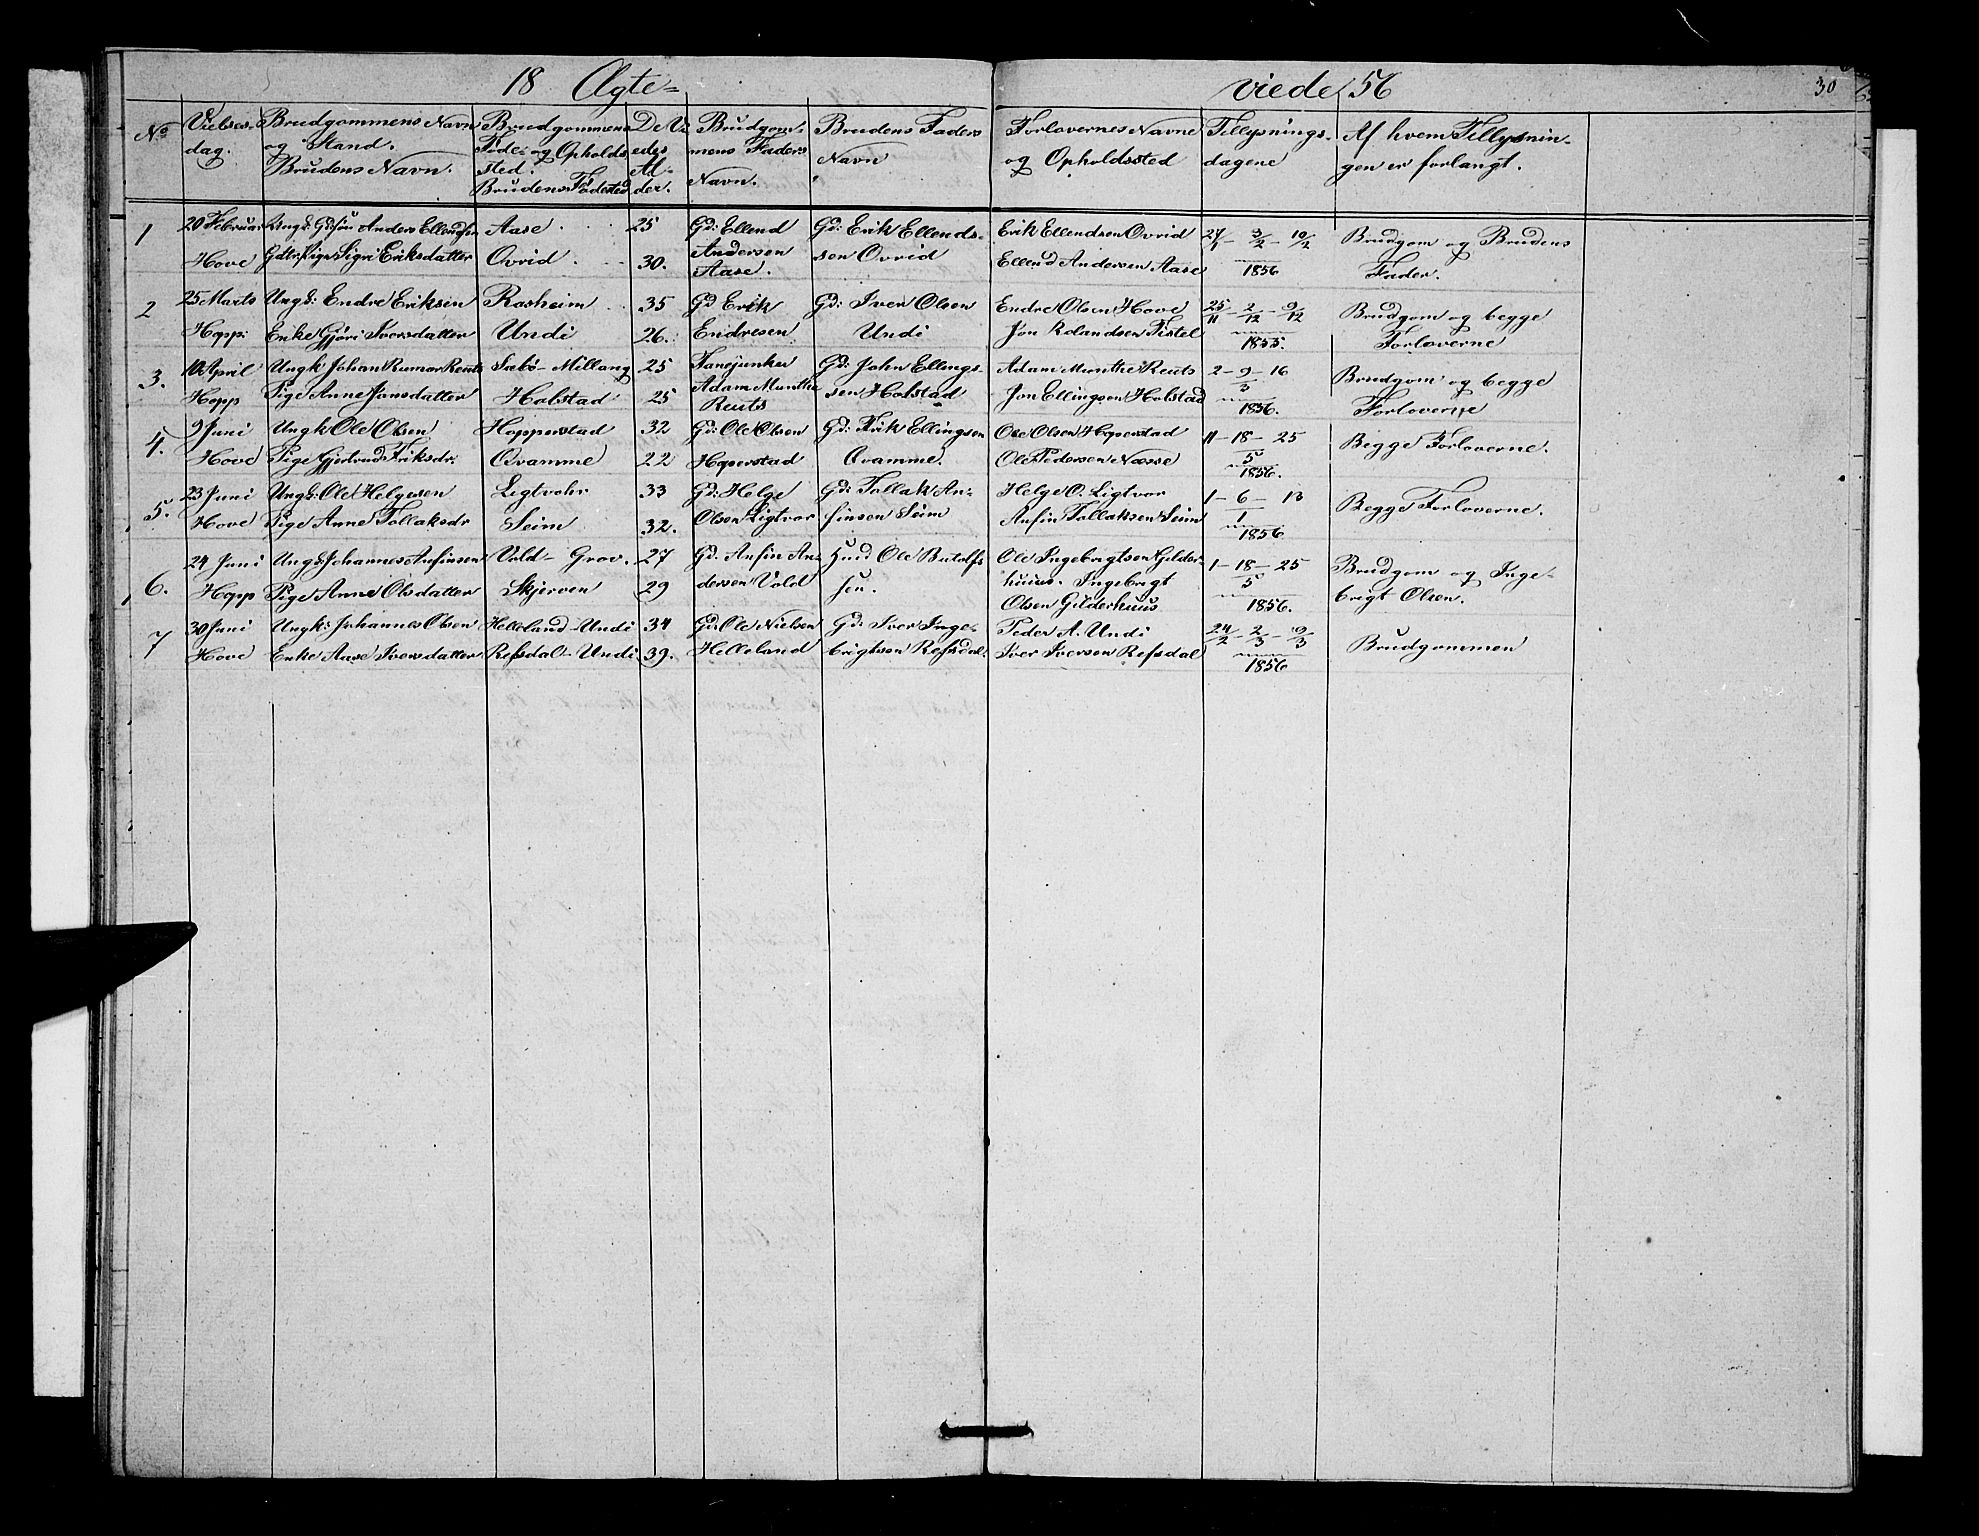 18 Ægte=
viede 56
30
No
Vielses-
dag.
Brudgommens Navn
og Stand.
Brudens Navn.
Brudgommens
Føde- og Opholds
sted.
Brudens Fødested
De Vi-
edes
Al-
der.
Brudgom-
mens Faders
Navn.
Brudens Faders
Navn
Forlovernes Navne
og Opholdssted
Tillysnings-
dagene
Af hvem Tillysnin-
gen er forlangt.
1
20 Februar
Hove
Ungk: Gdsøn Anders Ellendsen
Gdtr: Pige Sigri Eriksdatter
Aase
Ovrid
25
30.
Gd: Ellend
Andersen
Aase.
Gd: Erik Ellends-
sen Ovrid
Erik Ellendsen Ovrid
Ellend Andersen Aase
27/1 - 3/2 - 10/2
1856
Brudgom og Brudens
Fader.
2
25 Marts
Hopp:
Ungk: Endre Eriksen
Enke Gjøri Iversdatter
Rasheim
Undi
35
26.
Gd Erik
Endresen
Gd: Iver Olsen
Undi
Endre Olsen Hove
Jon Rolandsen Fistel
25/11 - 2/12 - 9/12
1855.
Brudgom og begge
Forloverne
3.
April
Hopp
Ungk Johan Rumor Reuts
Pige Anne Jonsdatter
Sæbø - Millang
Holstad
25
25
Fanejunker
Adam Munthe
Reuts
Gd: John Ellings-
sen Holstad
Adam Munthe Reuts
Jon Ellingsen Holstad
2 - 9 - 16
3
1856.
Brudgom og begge
Forloverne
4.
9 Juni
Hove
Ungk Ole Olsen
Pige Gjertrud Eriksdr.
Hopperstad
Qvamme
32
22
Gd: Ole Olsen
Hoperstad
Gd: Erik Ellingsen
Qvamme.
Ole Olsen Hoperstad
Ole Pedersen Næsse
11 - 18 - 25
5
1856.
Begge Forloverne.
5.
23 Juni
Hove
Ungk: Ole Helgesen
Pige Anne Tollaksdr
Ligtvohr
Seim
33
32.
Gd: Helge
Olsen Ligtvor
Gd: Tollak An-
finsen Seim
Helge O. Ligtvor
Anfin Tollaksen Seim
1 - 6 - 13
1
1856
Begge Forloverne.
6.
24 Juni
Hopp
Ungk Johannes Anfinsen
Pige Anne Olsdatter
Vold - Grov.
Skjerven
27
29
Gd. Anfin An-
dersen Vold
Huud Ole Butolfs
sen.
Ole Ingebrigtsen Gilder-
huus. Ingebrigt
Olsen Gilderhuus
1 - 18 - 25
5
1856.
Brudgom og Inge-
brigt Olsen.
7
30 Juni
Hove
Ungk: Johannes Olsen
Enke Aase Iversdatter
Helleland - Undi
Refsdal - Undi
34
39.
Gd: Ole Nielsen
Helleland
Gd: Iver Inge-
brigtsen Refsdal.
Peder A. Undi
Iver Iversen Refsdal
24/2 - 2/3 - 9/3
1856
Brudgommen